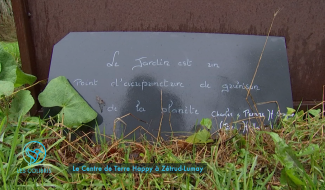 Le Jardin est un
Point d'acupuncture de guérison
de la planète Charles & Perrine H
LES COLIBRIS
Le Centre de Terre Happy à Zétrud-Lumay